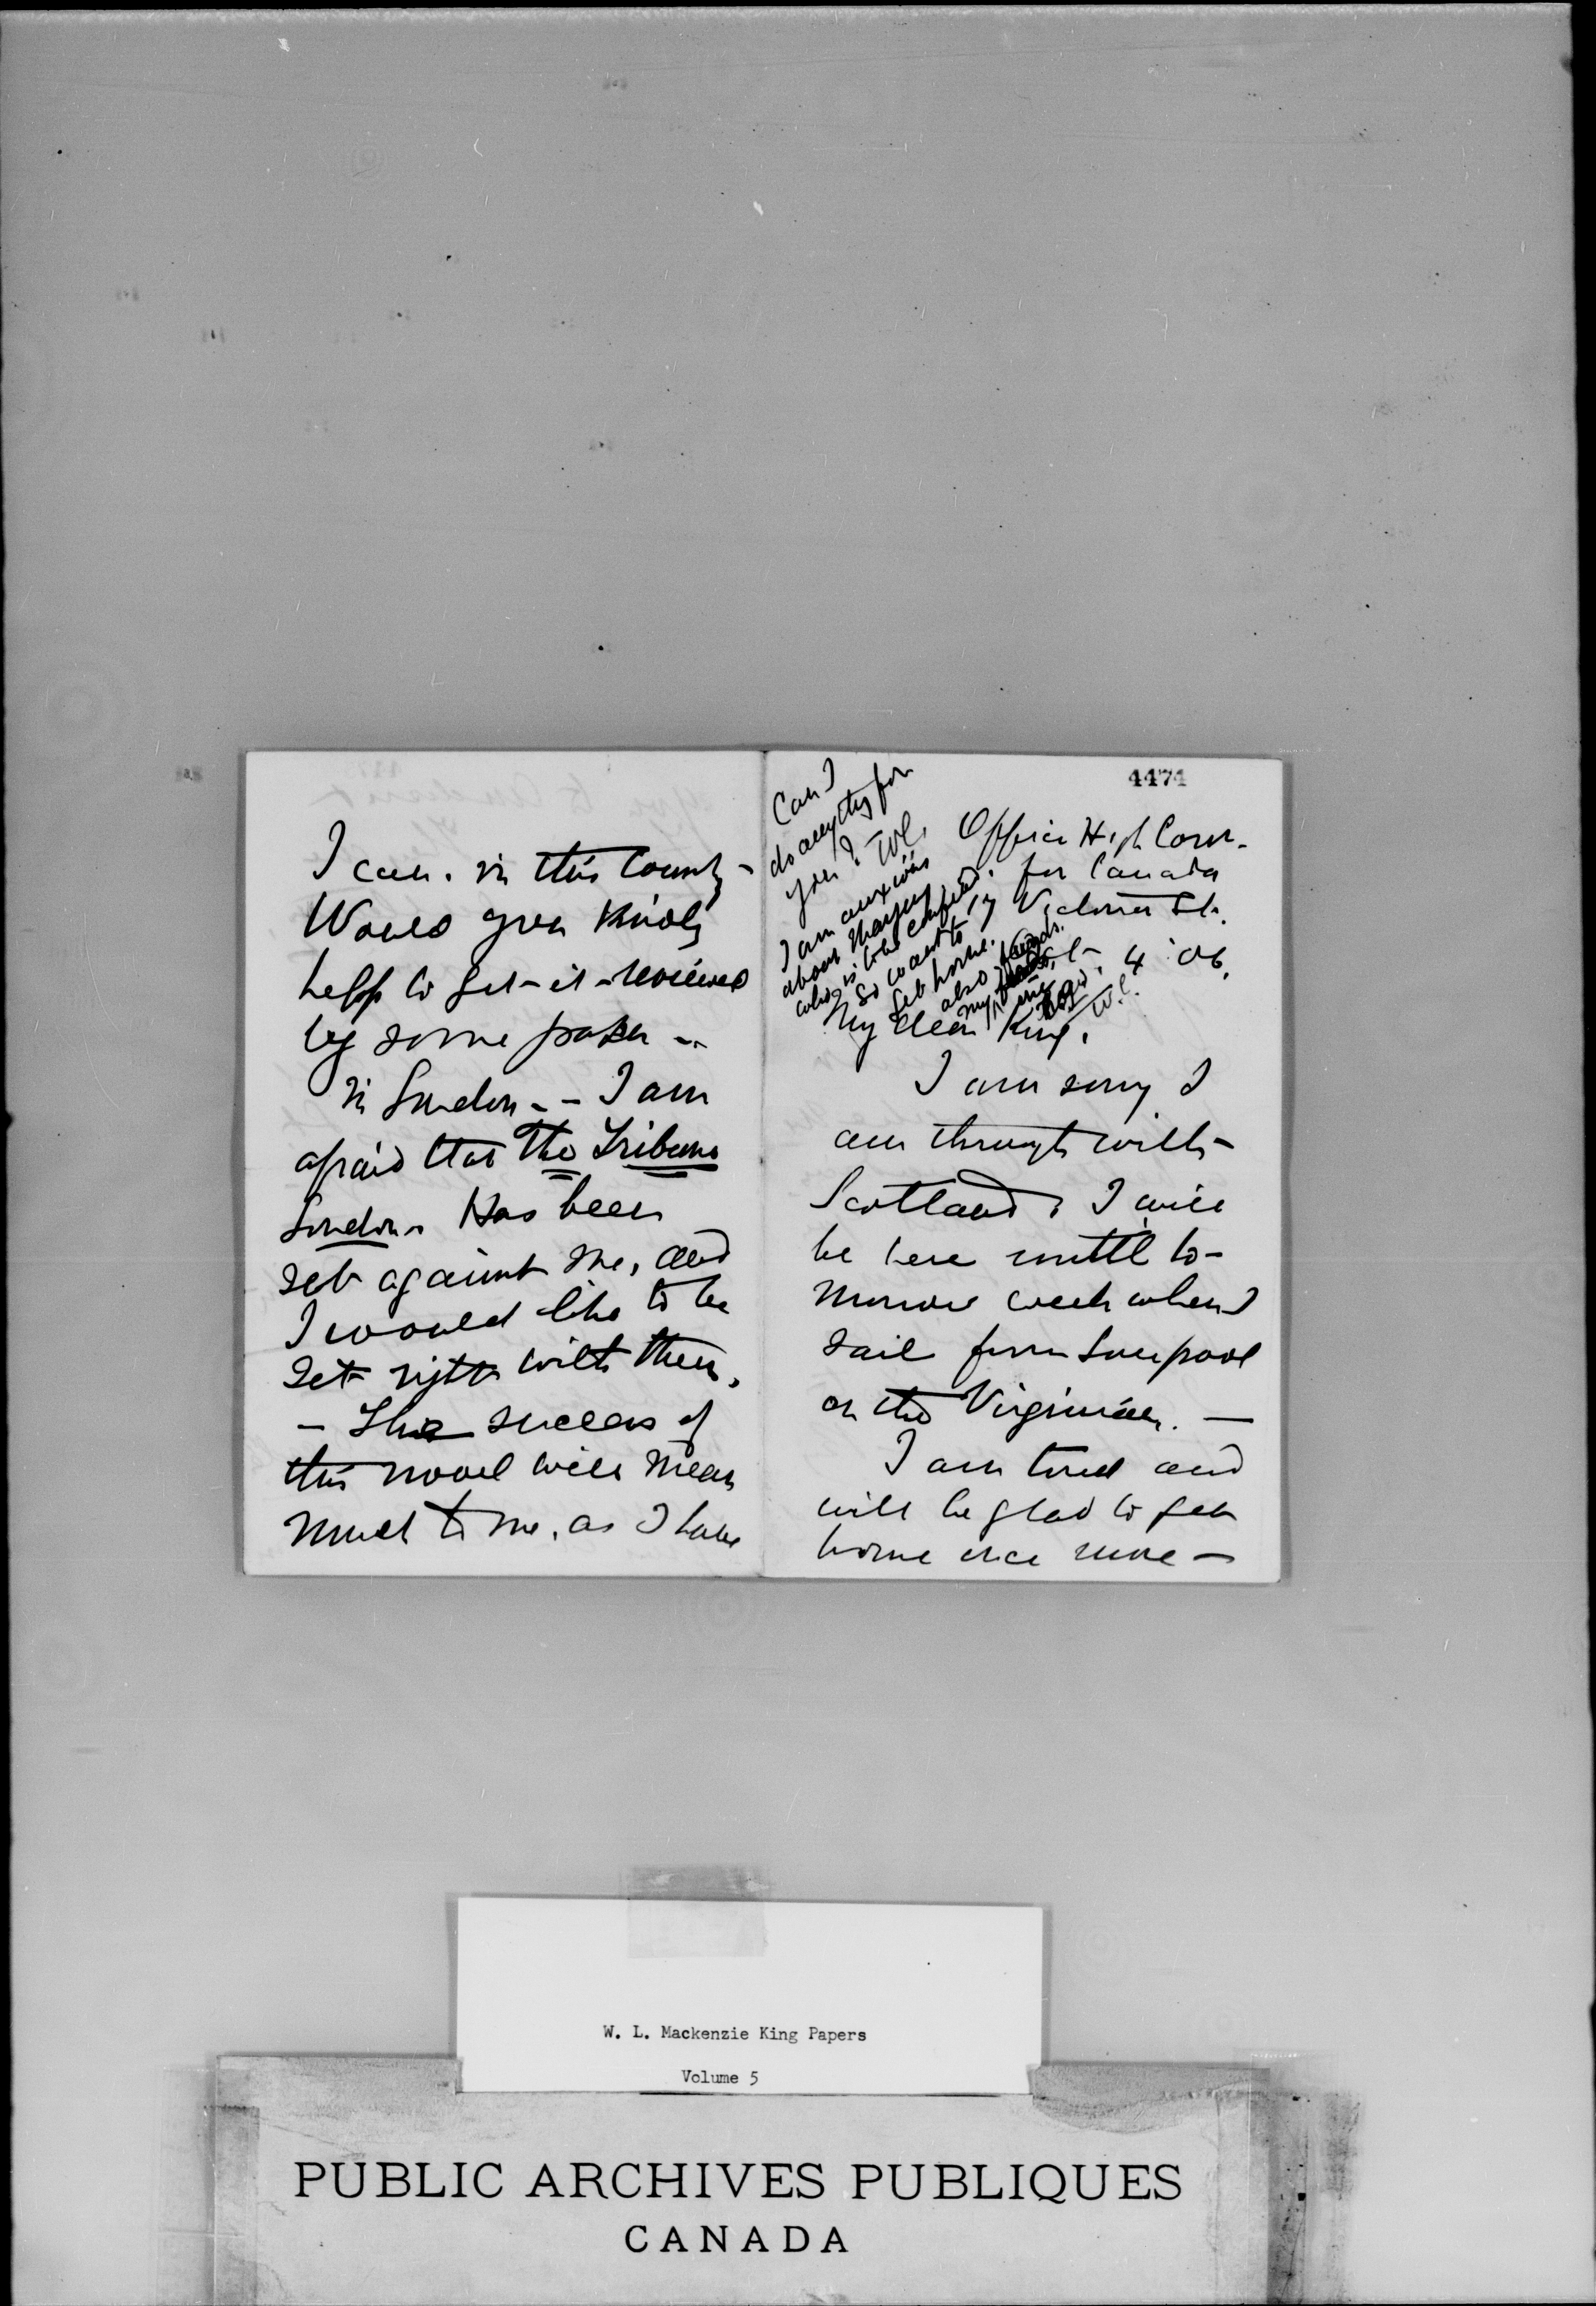 I can. in this County -
Would you kindly
help to get it reviewed
by some paper -
in London. - I am
afraid that The Tribune
London. Has been
set against me, and
I would like to be
set right with them.
- The success of
this novel will mean
much to me, as I have
4474
Can I
do anything for
you? WC.
I am anxious
about Marjory
who is to be confined.
So want to
get home.
also
my
W.C.
Office High Com.
for Canada
17 Victoria St.
4 '06.
My dear King,
I am sorry I
am through with
Scotland. I will
be here until to-
morrow week when I
sail from Liverpool
on the Virginian. -
I am tired and
will be glad to get
home once more -
W. L. Mackenzie King Papers
Volume 5
PUBLIC ARCHIVES PUBLIQUES
CANADA